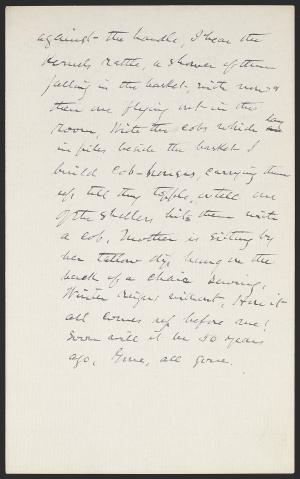 against the handle, I hear the
kernels rattle, a shower of them
falling in the basket, with now &
then one flying out in the
room, With the cobs which lay
in piles beside the basket I
build cob-houses, carrying them
up till they topple, or till one
of the shellers hits them with
a cob, Mother is sitting by
her tallow dip hung on the
back of a chair sewing,
Winter reigns without, How it
all comes up before me!
Soon will it be 50 years
ago, Gone, all gone.